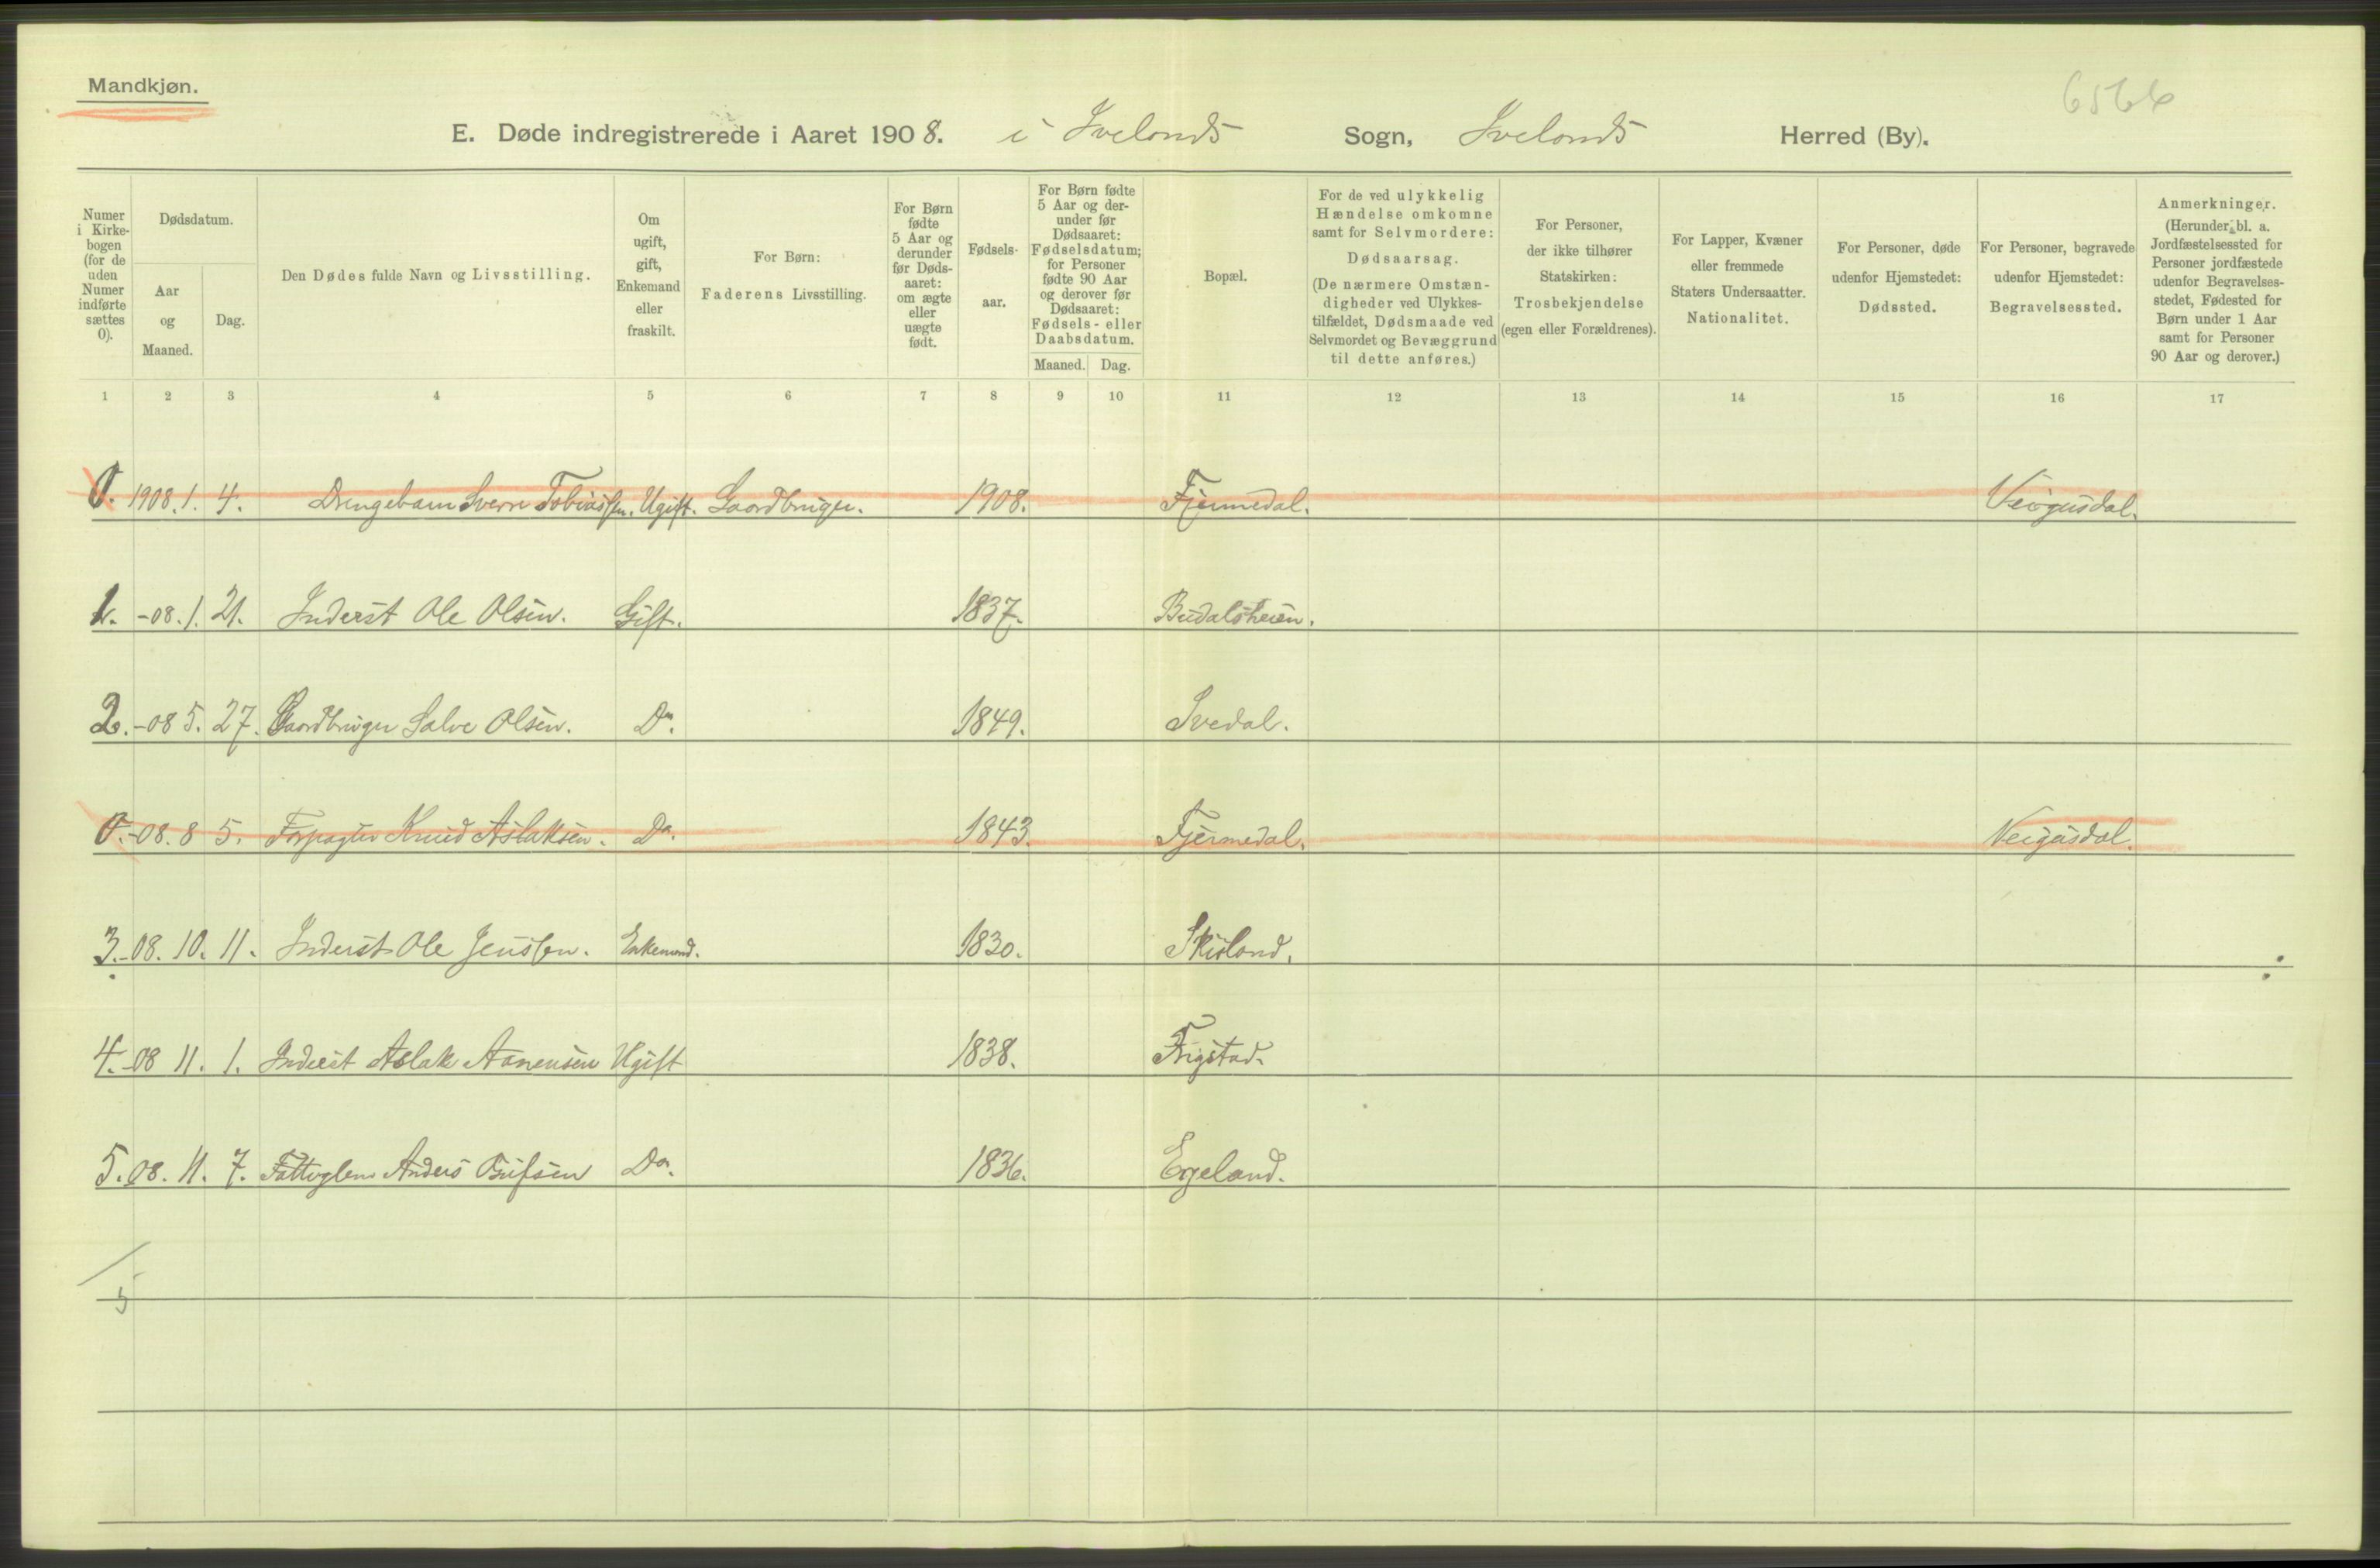 Mandkjøn.
6566
E. Døde indregistrerede i Aaret 1908. i Ivelands Sogn, Ivelands Herred (By).
Numer i Kirkebogen (for de uden Numer indførte sættes 0).
Dødsdatum.
Aar og Maaned.
Dag.
Den Dødes fulde Navn og Livsstilling.
Om ugift, gift, Enkemand eller fraskilt.
For Børn: Faderens Livsstilling.
For Børn fødte 5 Aar og derunder før Døds-aaret: om ægte eller uægte født.
Fødsels-aar.
For Børn fødte 5 Aar og der-under før Dødsaaret: Fødselsdatum; for Personer fødte 90 Aar og derover før Dødsaaret: Fødsels- eller Daabsdatum.
Maaned. Dag.
Bopæl.
For de ved ulykkelig Hændelse omkomne samt for Selvmordere: Dødsaarsag. (De nærmere Omstæn-digheder ved Ulykkes-tilfældet, Dødsmaade ved Selvmordet og Bevæggrund til dette anføres.)
For Personer, der ikke tilhører Statskirken: Trosbekjendelse (egen eller Forældrenes).
For Lapper, Kvæner eller fremmede Staters Undersaatter. Nationalitet.
For Personer, døde udenfor Hjemstedet: Dødssted.
For Personer, begravede udenfor Hjemstedet: Begravelsessted.
Anmerkninger. (Herunder bl. a. Jordfæstelsessted for Personer jordfæstede udenfor Begravelses-stedet, Fødested for Børn under 1 Aar samt for Personer 90 Aar og derover.)
1 2 3 4 5 6 7 8 9 10 11 12 13 14 15 16 17
0. 1908. 1. 4. Drengebarn Sverre Tobiassen. Ugift. Gaardbruger. 1908. Fjermedal. Veigusdal.
1. -08. 1. 21. Inderst Ole Olsen. Gift. 1837. Budalsheien.
2. -08 5. 27. Gaardbruger Salve Olsen. Do. 1849. Ivedal.
0. -08. 8 5. Forpagter Knud Aslaksen. Do. 1843. Fjermedal. Veigusdal.
3. -08. 10. 11. Inderst Ole Jenssen. Enkemand. 1830. Skisland.
4. -08 11. 1. Inderst Aslak Aanensen Ugift 1838. Frigstad.
5. 08. 11. 7. Anders Do. 1836. Egeland.
5